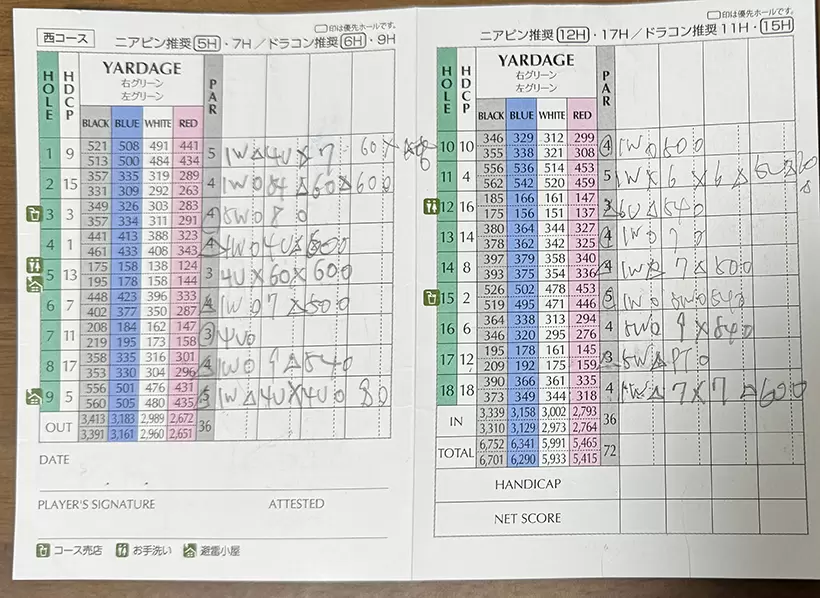 西コース
□印は優先ホールです。
ニアピン推奨 5H・7H／ドラコン推奨 6H・9H
HOLE HDCP YARDAGE PAR
右グリーン
左グリーン
BLACK BLUE WHITE RED
1 9 521 508 491 441 5 1W △ 4U × 7 60 ×
513 500 484 434
2 15 357 335 319 289 4 1W 0 54 △ 60 △ 60 0
331 309 292 263
3 3 349 326 303 283 4 5W 0 8 0
357 334 311 291
4 1 441 413 388 323 4 1W 0 4U × 50 0
461 433 408 343
5 13 175 158 138 124 3 4U × 60 × 60 0
195 178 158 144
6 7 448 423 396 333 4 1W 0 7 × 50 0
402 377 350 287
7 11 208 184 162 147 3 4U 0
219 195 173 158
8 17 358 335 316 301 4 1W 0 9 △ 54 0
353 330 304 296
9 5 556 501 476 431 5 1W △ 4U × 4U 0 8 0
560 505 480 435
OUT 3,413 3,183 2,989 2,672 36
3,391 3,161 2,960 2,651
DATE
PLAYER'S SIGNATURE ATTESTED
コース売店 お手洗い 避雷小屋
□印は優先ホールです。
ニアピン推奨 12H・17H／ドラコン推奨 11H・15H
HOLE HDCP YARDAGE PAR
右グリーン
左グリーン
BLACK BLUE WHITE RED
10 10 346 329 312 299 4 1W 0 50 0
355 338 321 308
11 4 556 536 514 453 5 1W × 6 × 6 △ 50 △
562 542 520 459
12 16 185 166 161 147 3 6U △ 54 0
175 156 151 137
13 14 380 364 344 327 4 1W 0 7 0
378 362 342 325
14 8 397 379 358 340 4 1W △ 7 △ 50 0
393 375 354 336
15 2 526 502 478 453 5 1W 0 5W 0 54 0
519 495 471 446
16 6 364 338 313 294 4 5W 0 9 × 54 0
346 320 295 276
17 12 195 178 161 145 3 5W △ PT 0
209 192 175 159
18 18 390 366 361 335 4 1W △ 7 × 7 △ 60 0
373 349 344 318
IN 3,339 3,158 3,002 2,793 36
3,310 3,129 2,973 2,764
TOTAL 6,752 6,341 5,991 5,465 72
6,701 6,290 5,933 5,415
HANDICAP
NET SCORE